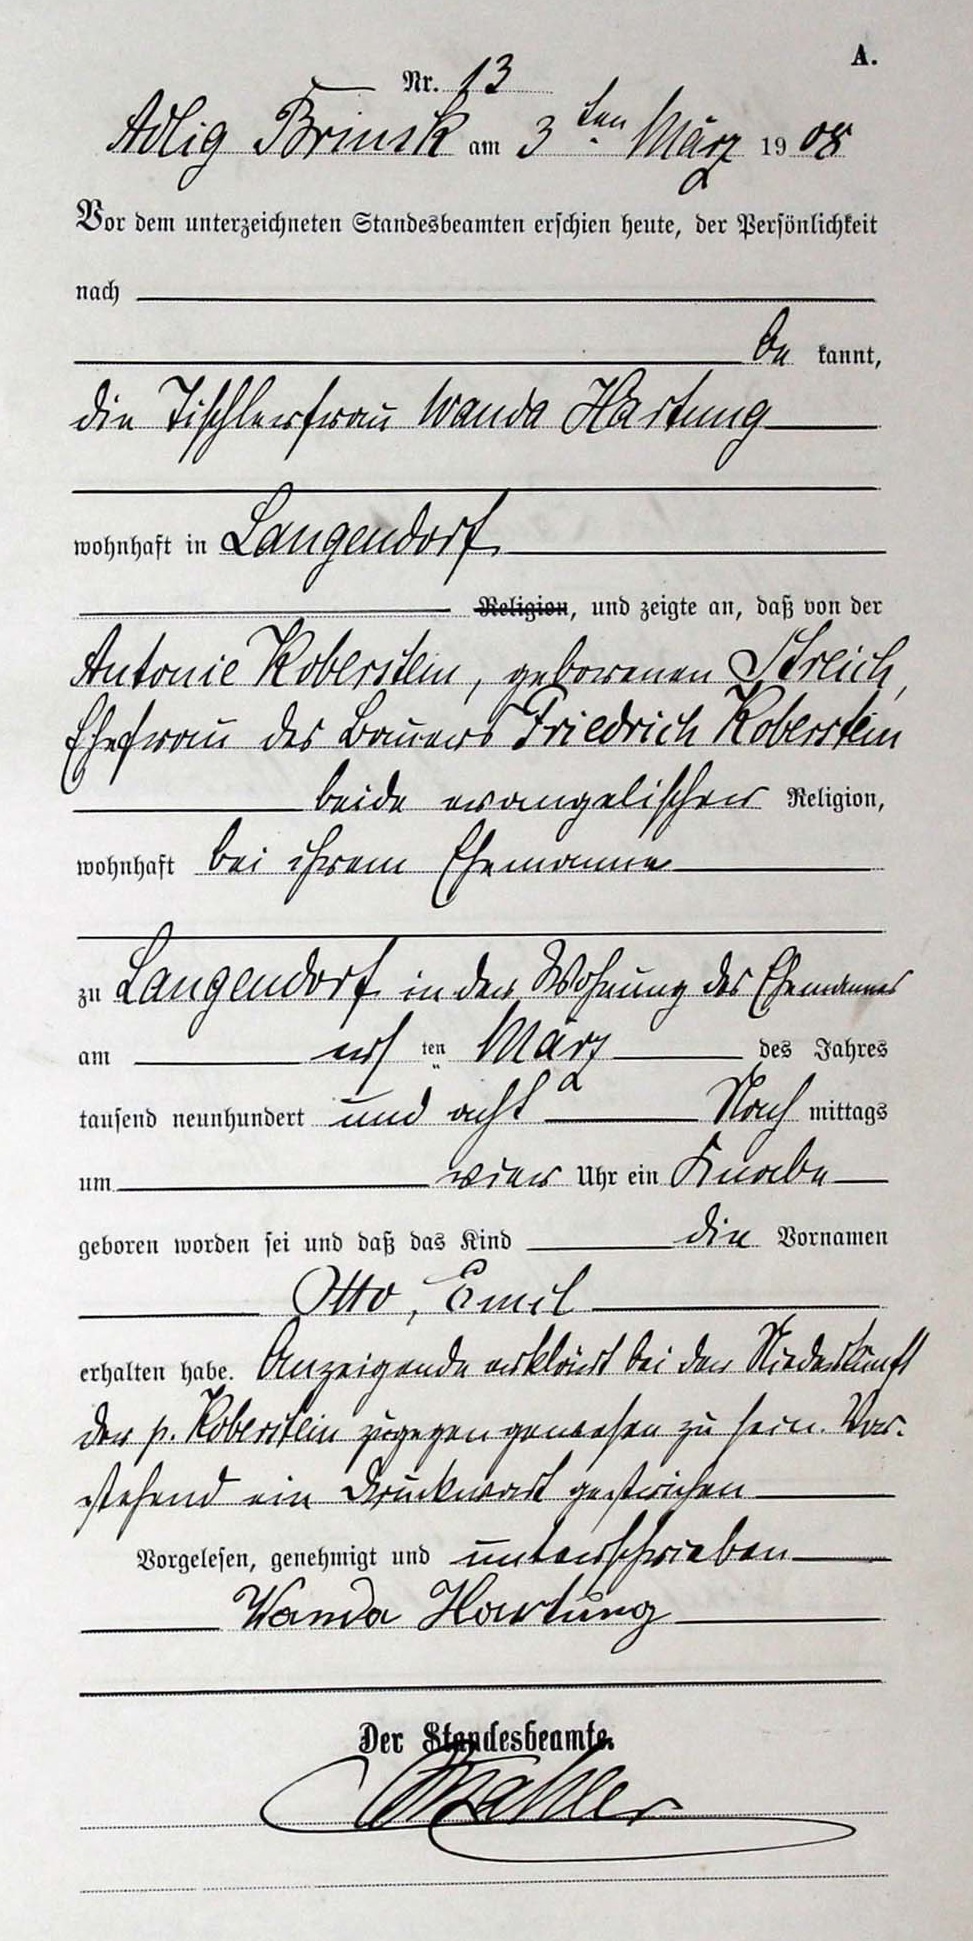 A.
Nr. 13
Adlig Brinsk am 3ten März 1908
Vor dem unterzeichneten Standesbeamten erschien heute, der Persönlichkeit
nach
be kannt,
die Tischlerfrau Wanda Hartung
wohnhaft in Langendorf
Religion, und zeigte an, daß von der
Antonie Koberstein, geborenen Streich,
Ehefrau des Bauers Friedrich Koberstein
beide evangelischer Religion,
wohnhaft bei ihrem Ehemanne
zu Langendorf in der Wohnung des Ehemannes
am ersten März des Jahres
tausend neunhundert und acht Nach mittags
um vier Uhr ein Knabe
geboren worden sei und daß das Kind die Vornamen
Otto, Emil
erhalten habe. Anzeigende erklärt bei der Niederkunft
der p. Koberstein zugegen gewesen zu sein. Vor-
stehend ein Druckwort gestrichen
Vorgelesen, genehmigt und unterschrieben
Wanda Hartung
Der Standesbeamte.